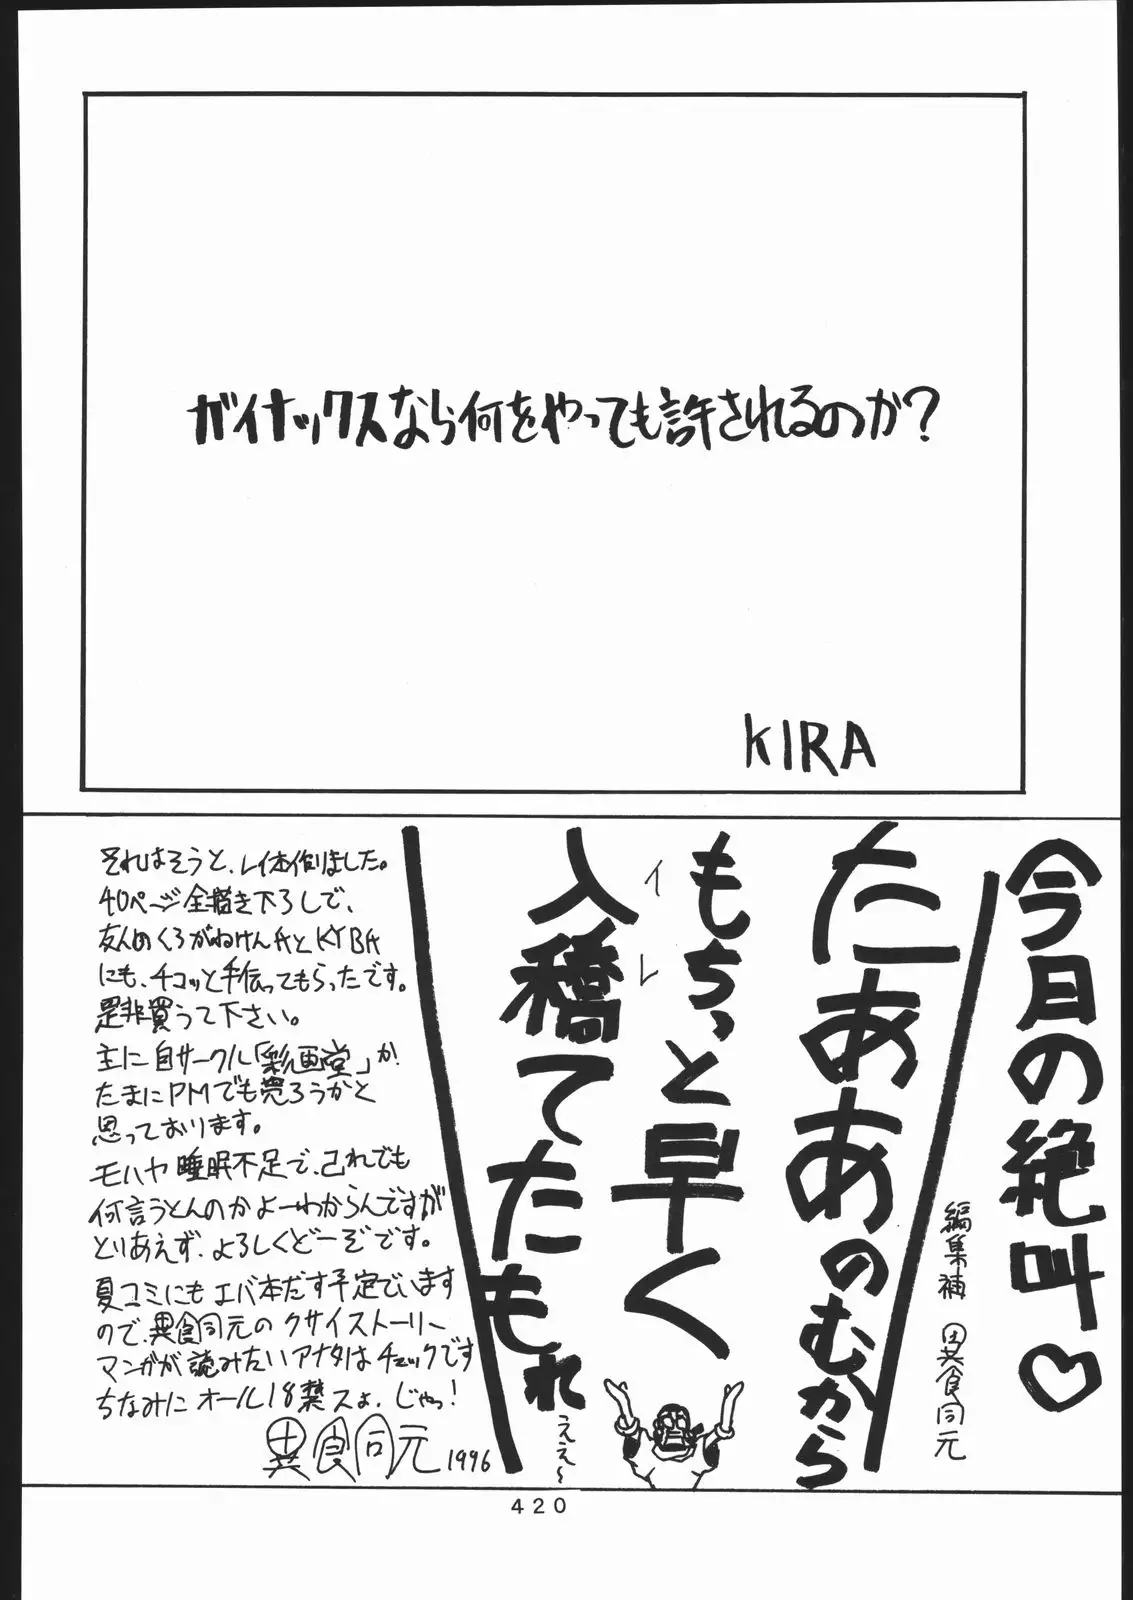 ガイナックスなら何をやっても許されるのか？
KIRA
今月の絶叫♡
編集補 異食同元
たああのむから
もちっと早く
イレ
入稿てたもれ
ええ〜
それはそうと、レイ本作りました。
40ページ全描き下ろしで、
友人のくろがねけんAとKYBA
にも、チコッと手伝ってもらったです。
是非買うて下さい。
主に自サークル「彩画堂」か
たまにPMでも売ろうかと
思っております。
モハヤ睡眠不足で、己れでも
何言うとんのかよーわからんですが
とりあえず、よろしくどーぞです。
夏コミにもエバ本だす予定でいます
ので、異食同元のクサイストーリー
マンガが読みたいアナタはチェックです
ちなみにオール18禁スよ、じゃっ！
異食同元 1996
420